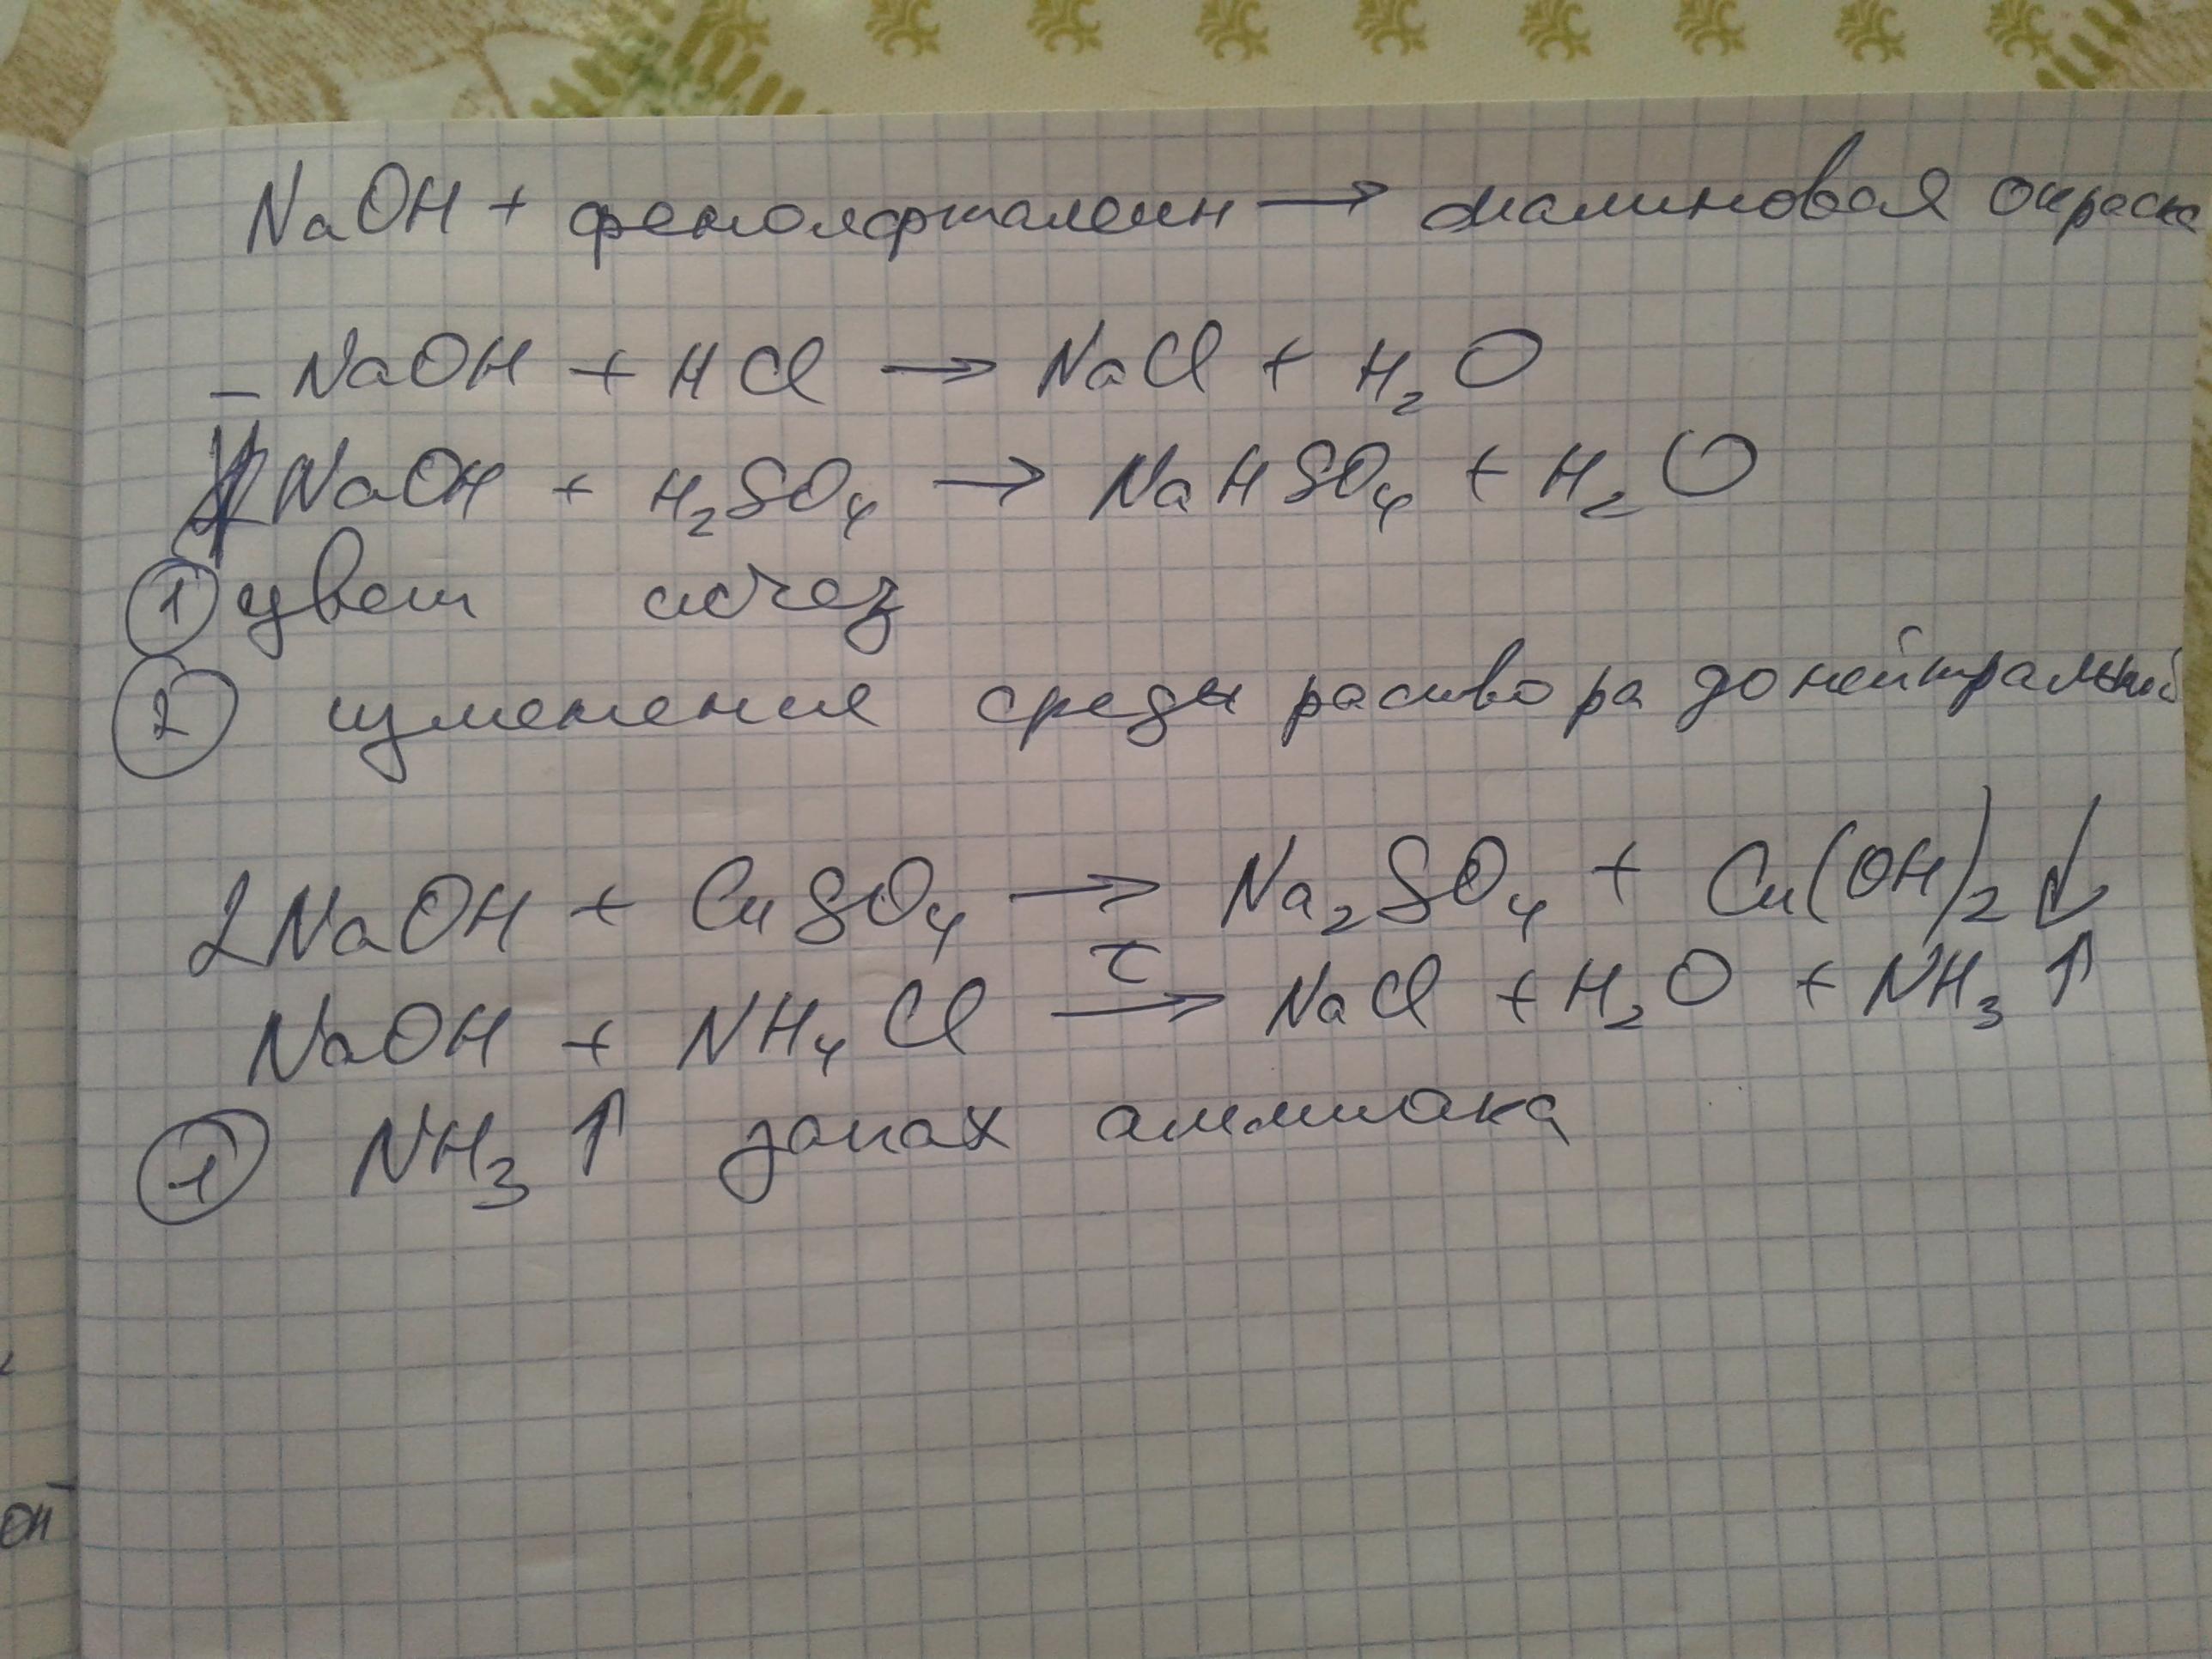 NaOH + фенолфталеин → малиновая окраска
– NaOH + HCl → NaCl + H₂O
NaOH + H₂SO₄ → NaHSO₄ + H₂O
① цвет исчез
② изменение среды раствора до нейтральной
2NaOH + CuSO₄ → Na₂SO₄ + Cu(OH)₂ ↓
NaOH + NH₄Cl →τ NaCl + H₂O + NH₃ ↑
① NH₃ ↑ запах аммиака
OH⁻